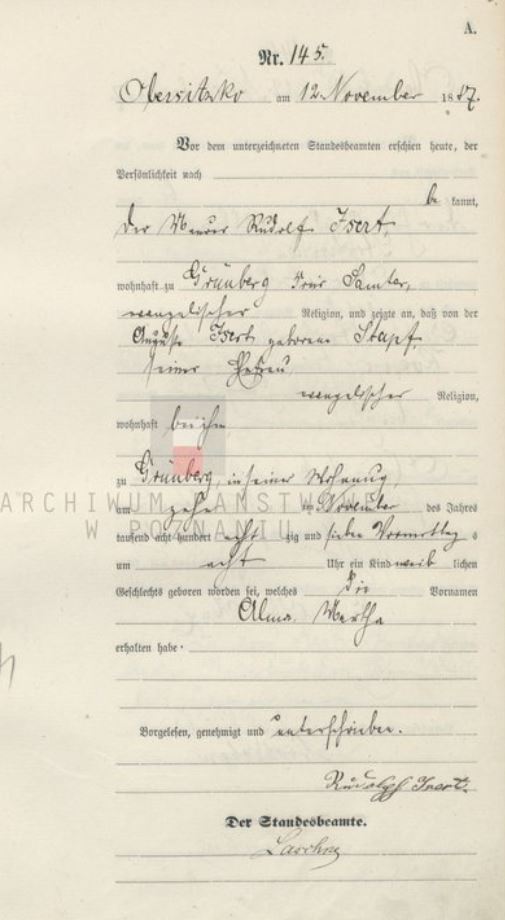 A.
Nr. 145.
Obersitzko am 12. November 1887.
Vor dem unterzeichneten Standesbeamten erschien heute, der
Persönlichkeit nach
be kannt,
der Maurer Rudolf Isert,
wohnhaft zu Grünberg Kreis Samter,
evangelischer Religion, und zeigte an, daß von der
Auguste Isert geborene Stapf,
seiner Ehefrau
evangelischer Religion,
wohnhaft bei ihm
zu Grünberg, in seiner Wohnung,
am zehn November des Jahres
tausend acht hundert acht zig und sieben Vormittag s
um acht Uhr ein Kind weib lichen
Geschlechts geboren worden sei, welches die Vornamen
Alma Martha
erhalten habe.
Vorgelesen, genehmigt und unterschrieben.
Rudolph Isert.
Der Standesbeamte.
ARCHIWUM PAŃSTWOWE
W POZNANIU